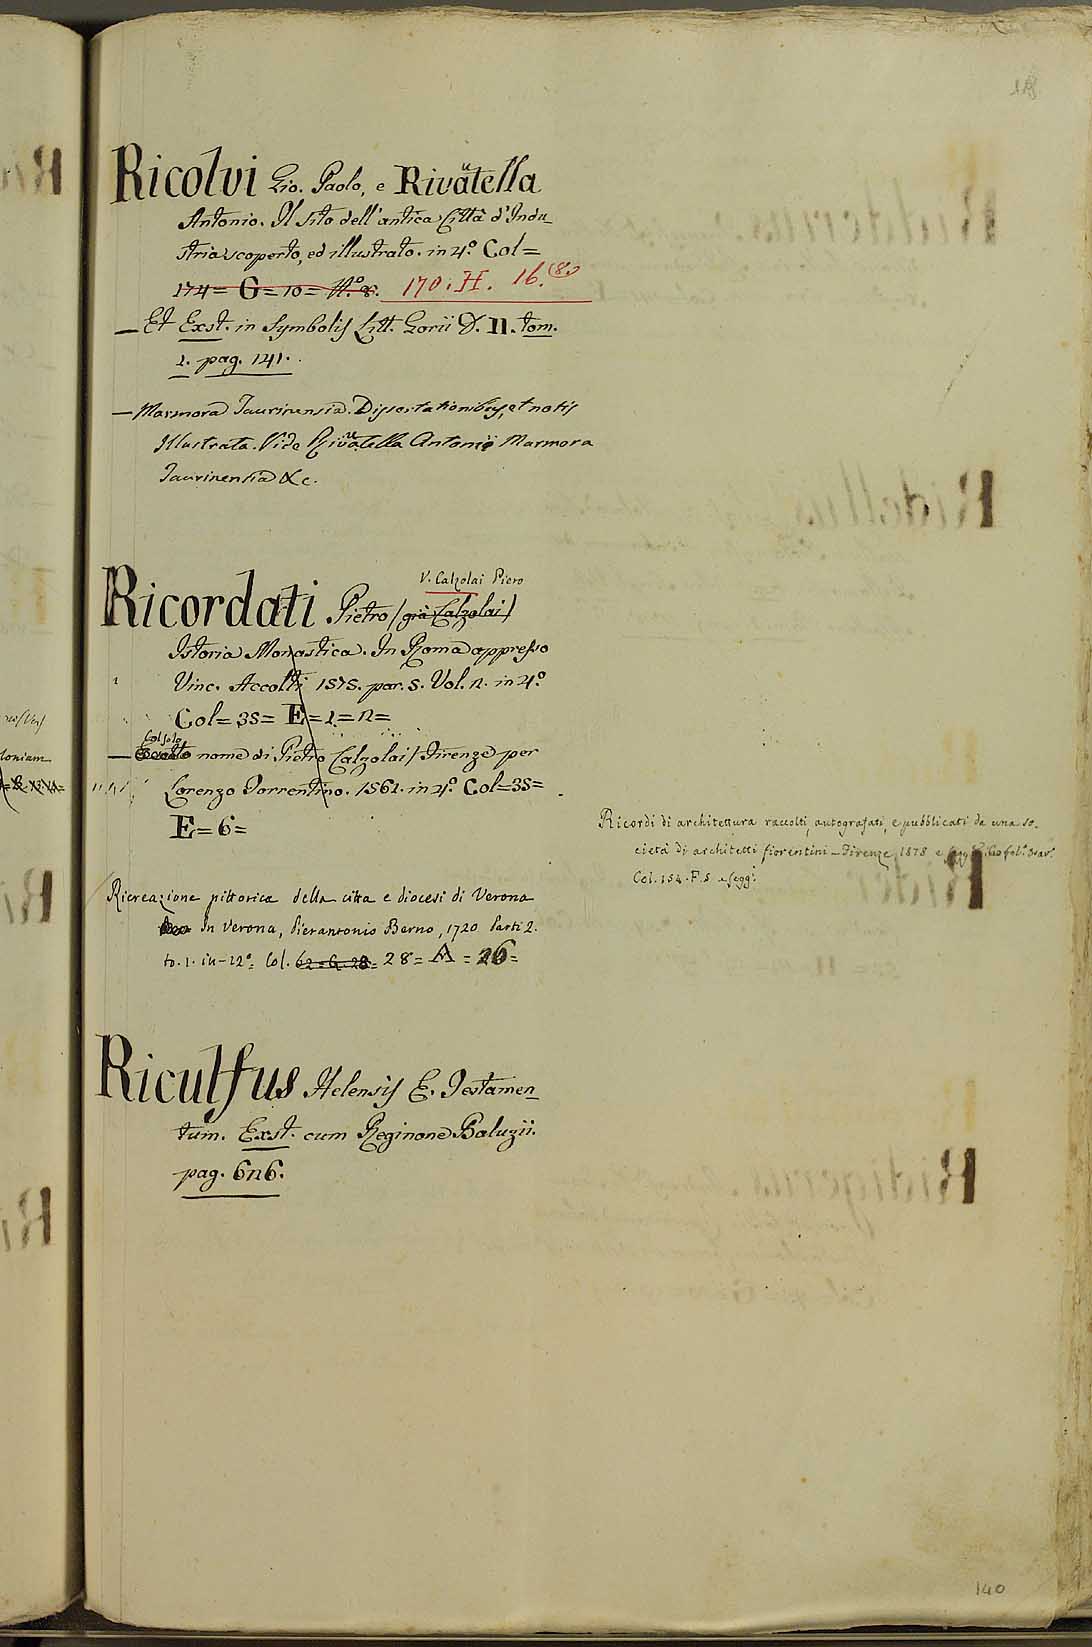 Ricolvi Gio. Paolo, e Rivautella
Antonio. Il sito dell'antica Città d'Indu_
stria scoperto, ed illustrato. in 4.º Col=
174= G=10= N.º 8. 170. H. 16. (8.)
— Et Exst. in Symbolis Litt. Gorii D. II. tom.
1. pag. 141.
— Marmora Taurinensia. Dissertationibus, et notis
Illustrata. Vide Rivautella Antonii Marmora
Taurinensia &c.
V. Calzolai Piero
Ricordati Pietro (già Calzolai)
Istoria Monastica. In Roma appresso
Vinc. Accolti 1575. par. 5. Vol. 2. in 4.º
Col= 35= E=1=2=
Col solo
— nome di Pietro Calzolai / Firenze per
Lorenzo Torrentino. 1561. in 4.º Col=35=
E=6=
Ricordi di architettura raccolti, autografati, e pubblicati da una so_
cietà di architetti fiorentini – Firenze, 1878 e
Col. 154. F. 5 e segg.ⁱ
Ricreazione pittorica della citta e diocesi di Verona
In Verona, Pierantonio Berno, 1720 Parti 2.
to. 1. in-12º= Col. 62=G.28= 28= A = 26=
Riculfus Helensis E. Testamen_
tum. Exst. cum Reginone Baluzii.
pag. 626.
140